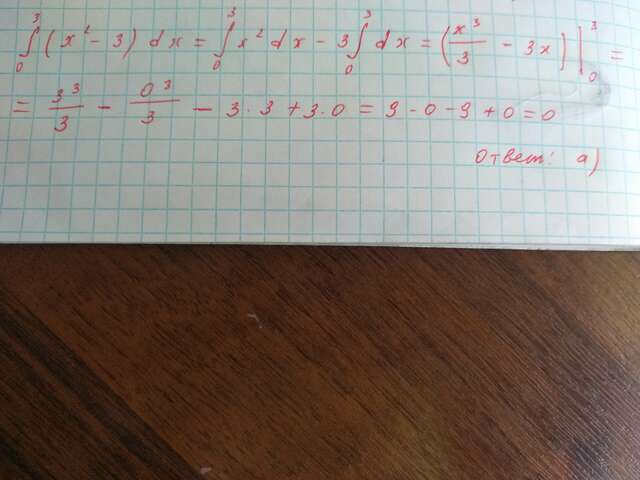 ∫₀³ (x² - 3) dx = ∫₀³ x² dx - 3 ∫₀³ dx = (x³/3 - 3x) |₀³ =
= 3³/3 - 0³/3 - 3·3 + 3·0 = 9 - 0 - 9 + 0 = 0
Ответ: а)